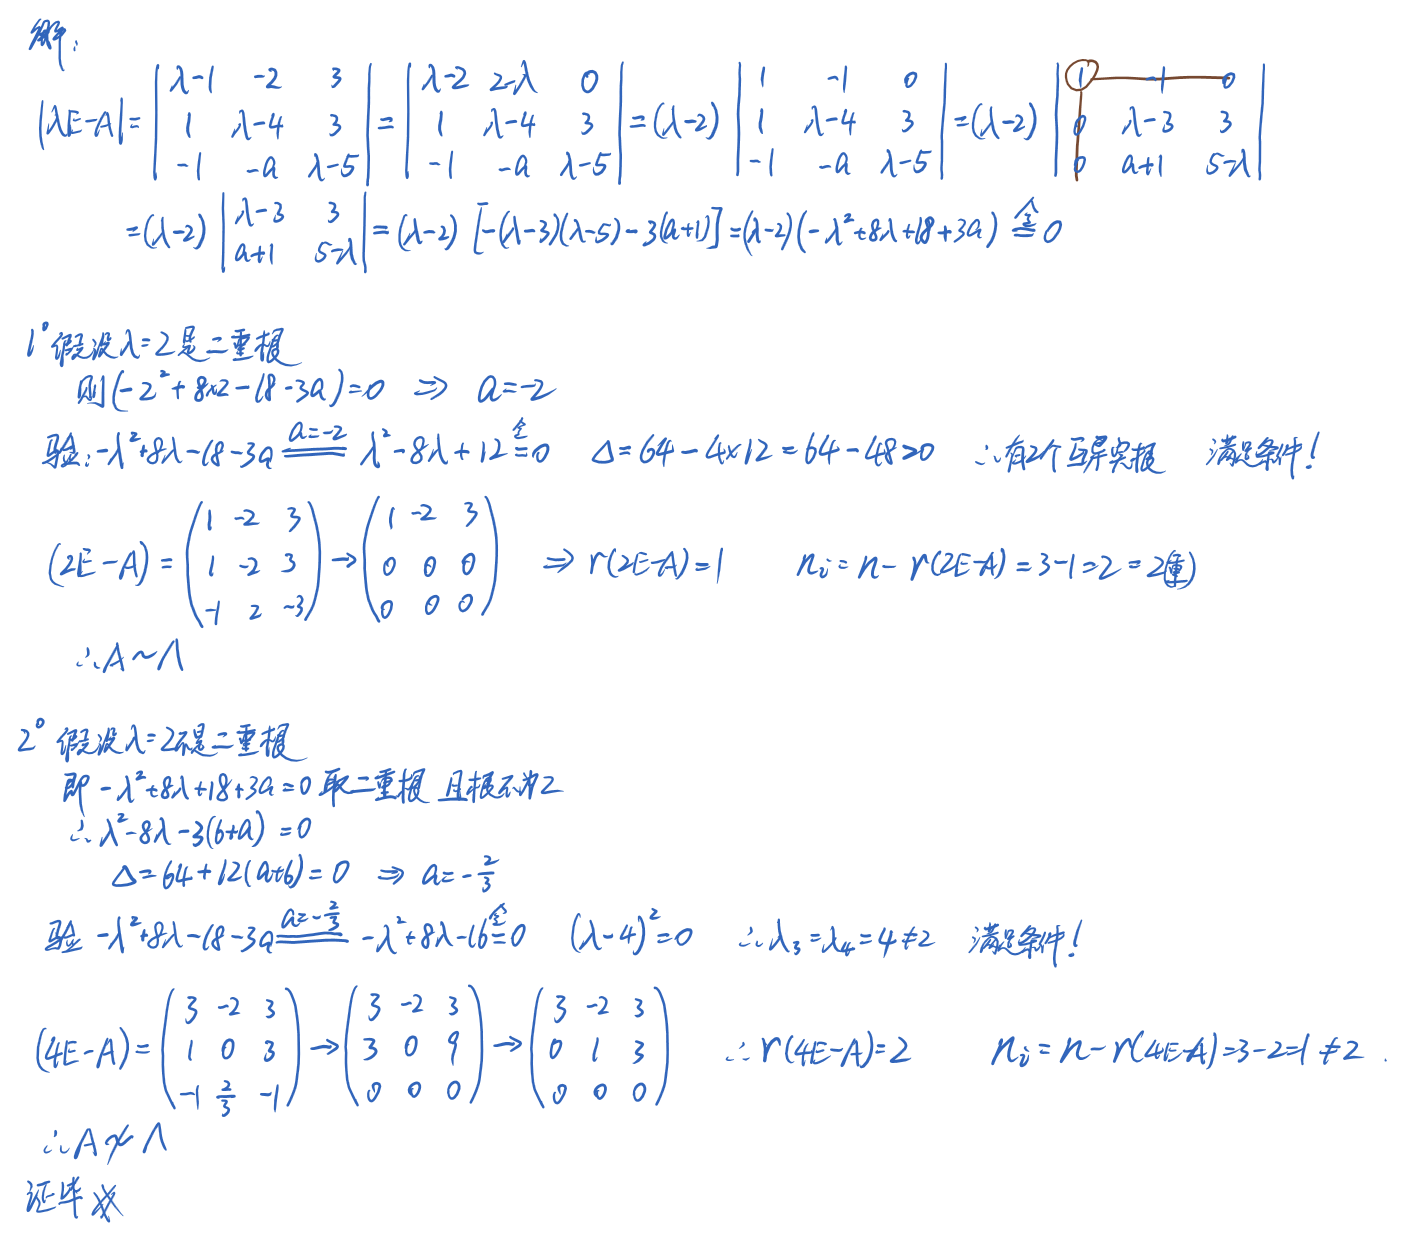 解:
|λE-A| = | λ-1 -2 3 ; 1 λ-4 3 ; -1 -a λ-5 | = | λ-2 2-λ 0 ; 1 λ-4 3 ; -1 -a λ-5 | = (λ-2) | 1 -1 0 ; 1 λ-4 3 ; -1 -a λ-5 | = (λ-2) | 1 -1 0 ; 0 λ-3 3 ; 0 a+1 5-λ |
= (λ-2) | λ-3 3 ; a+1 5-λ | = (λ-2) [-(λ-3)(λ-5)-3(a+1)] = (λ-2)(-λ²+8λ+18+3a) 令= 0
1° 假设λ=2是二重根
则(-2²+8×2-18-3a)=0 ⇒ a=-2
验:-λ²+8λ-18-3a a=-2 = λ²-8λ+12 令= 0 Δ=64-4×12=64-48>0 ∴有2个互异实根 满足条件!
(2E-A) = ( 1 -2 3 ; 1 -2 3 ; -1 2 -3 ) → ( 1 -2 3 ; 0 0 0 ; 0 0 0 ) ⇒ r(2E-A)=1 nᵢ=n-r(2E-A)=3-1=2=2(重)
∴A~Λ
2° 假设λ=2不是二重根
即 -λ²+8λ+18+3a=0 取二重根 且根不为2
∴λ²-8λ-3(6+a)=0
Δ=64+12(a+6)=0 ⇒ a=-2/3
验 -λ²+8λ-18-3a a=-2/3 = -λ²+8λ-16 令= 0 (λ-4)²=0 ∴λ₃=λ₄=4≠2 满足条件!
(4E-A) = ( 3 -2 3 ; 1 0 3 ; -1 2/3 -1 ) → ( 3 -2 3 ; 3 0 9 ; 0 0 0 ) → ( 3 -2 3 ; 0 1 3 ; 0 0 0 ) ∴r(4E-A)=2 nᵢ=n-r(4E-A)=3-2=1≠2.
∴A≁Λ
证毕